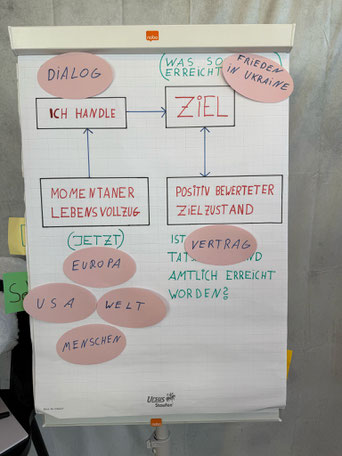 nobo
DIALOG
(WAS SO
ERREICHT
FRIEDEN
IN UKRAINE
ICH HANDLE
ZIEL
MOMENTANER
LEBENSVOLLZUG
POSITIV BEWERTETER
ZIELZUSTAND
(JETZT)
IST
VERTRAG
TAT
ND
AMTLICH ERREICHT
WORDEN?
EUROPA
USA
WELT
MENSCHEN